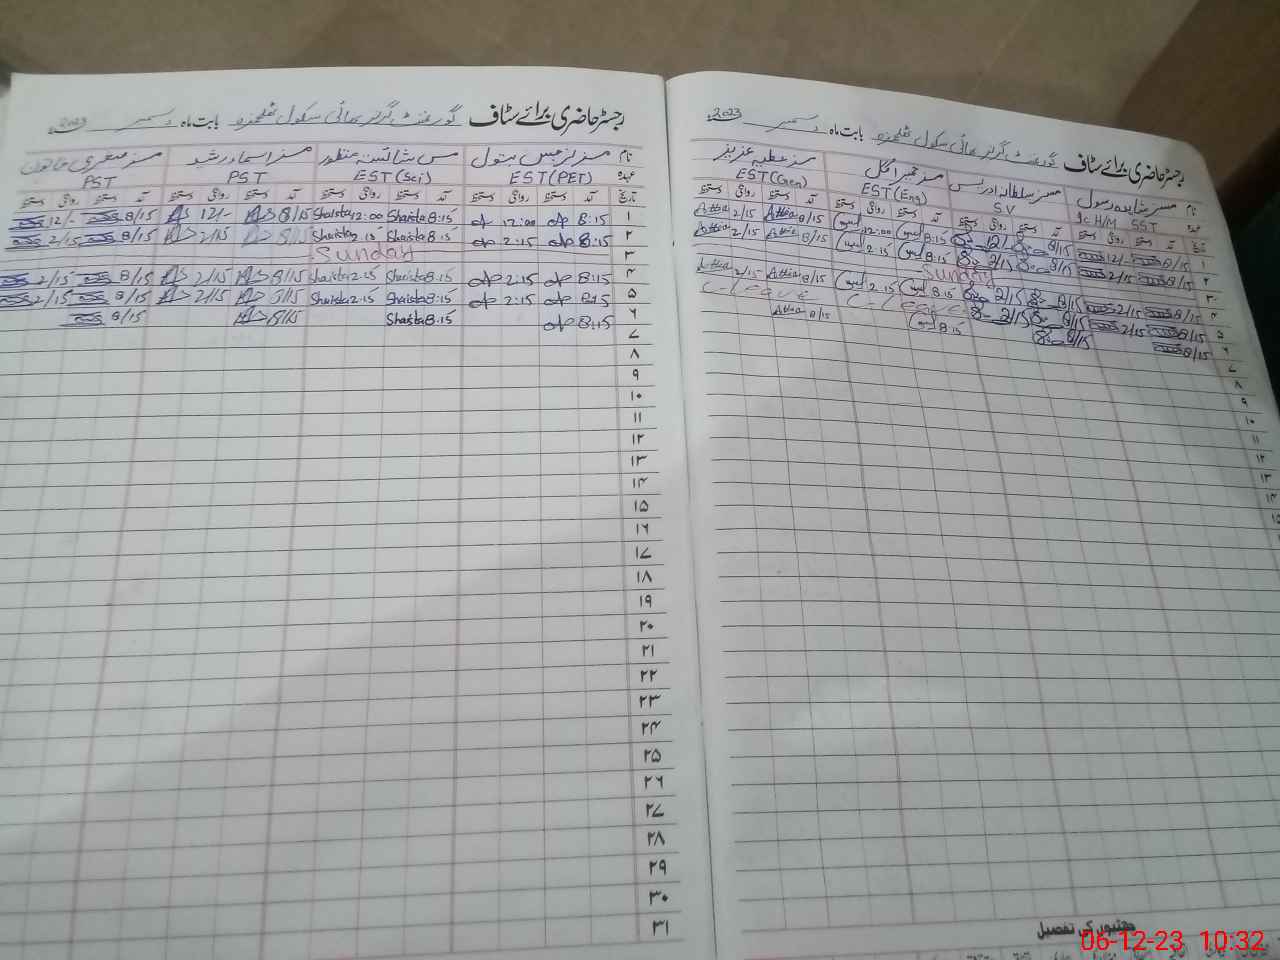 رجسٹر حاضری برائے سٹاف گورنمنٹ گرلز ہائی سکول بابت ماہ دسمبر 2023
نام مسز شاہدہ رسول مسز سلطانہ ادریس مسز حمیرا گل مسز عطیہ عزیز
عہدہ Ic H/M SST SV EST(Eng) EST(Gen)
تاریخ آمد دستخط روانگی دستخط آمد دستخط روانگی دستخط آمد دستخط روانگی دستخط آمد دستخط روانگی دستخط
۱ 8/15 12/- 8/15 12/- 8:15 12:00 8/15 Attia 2/15 Attia
۲ 8/15 2/15 8/15 2/15 8:15 2:15 8/15 Attia 2/15 Attia
۳ Sunday
۴ 8/15 2/15 8/15 2/15 8:15 2:15 8/15 Attia 2/15 Attia
۵ 8/15 2/15 8/15 2/15 C-Leave C-Leave
۶ 8/15 8/15 8:15 8/15 Attia
۷
۸
۹
۱۰
۱۱
۱۲
۱۳
۱۴
۱۵
چھٹیوں کی تفصیل
رجسٹر حاضری برائے سٹاف گورنمنٹ گرلز ہائی سکول بابت ماہ دسمبر 2023
نام مسز نرجس بتول مس شائستہ منظور مسز اسماء رشید مسز صغریٰ خاتون
عہدہ EST(PET) EST(Sci) PST PST
تاریخ آمد دستخط روانگی دستخط آمد دستخط روانگی دستخط آمد دستخط روانگی دستخط آمد دستخط روانگی دستخط
۱ 8:15 12:00 8:15 Shaista 12:00 Shaista 8/15 12/- 8/15 12/-
۲ 8:15 2:15 8:15 Shaista 2:15 Shaista 8/15 2/15 8/15 2/15
۳ Sunday
۴ 8:15 2:15 8:15 Shaista 2:15 Shaista 8/15 2/15 8/15 2/15
۵ 8:15 2:15 8:15 Shaista 2:15 Shaista 8/15 2/15 8/15 2/15
۶ 8:15 8:15 Shaista 8/15 8/15
۷
۸
۹
۱۰
۱۱
۱۲
۱۳
۱۴
۱۵
۱۶
۱۷
۱۸
۱۹
۲۰
۲۱
۲۲
۲۳
۲۴
۲۵
۲۶
۲۷
۲۸
۲۹
۳۰
۳۱
06-12-23 10:32